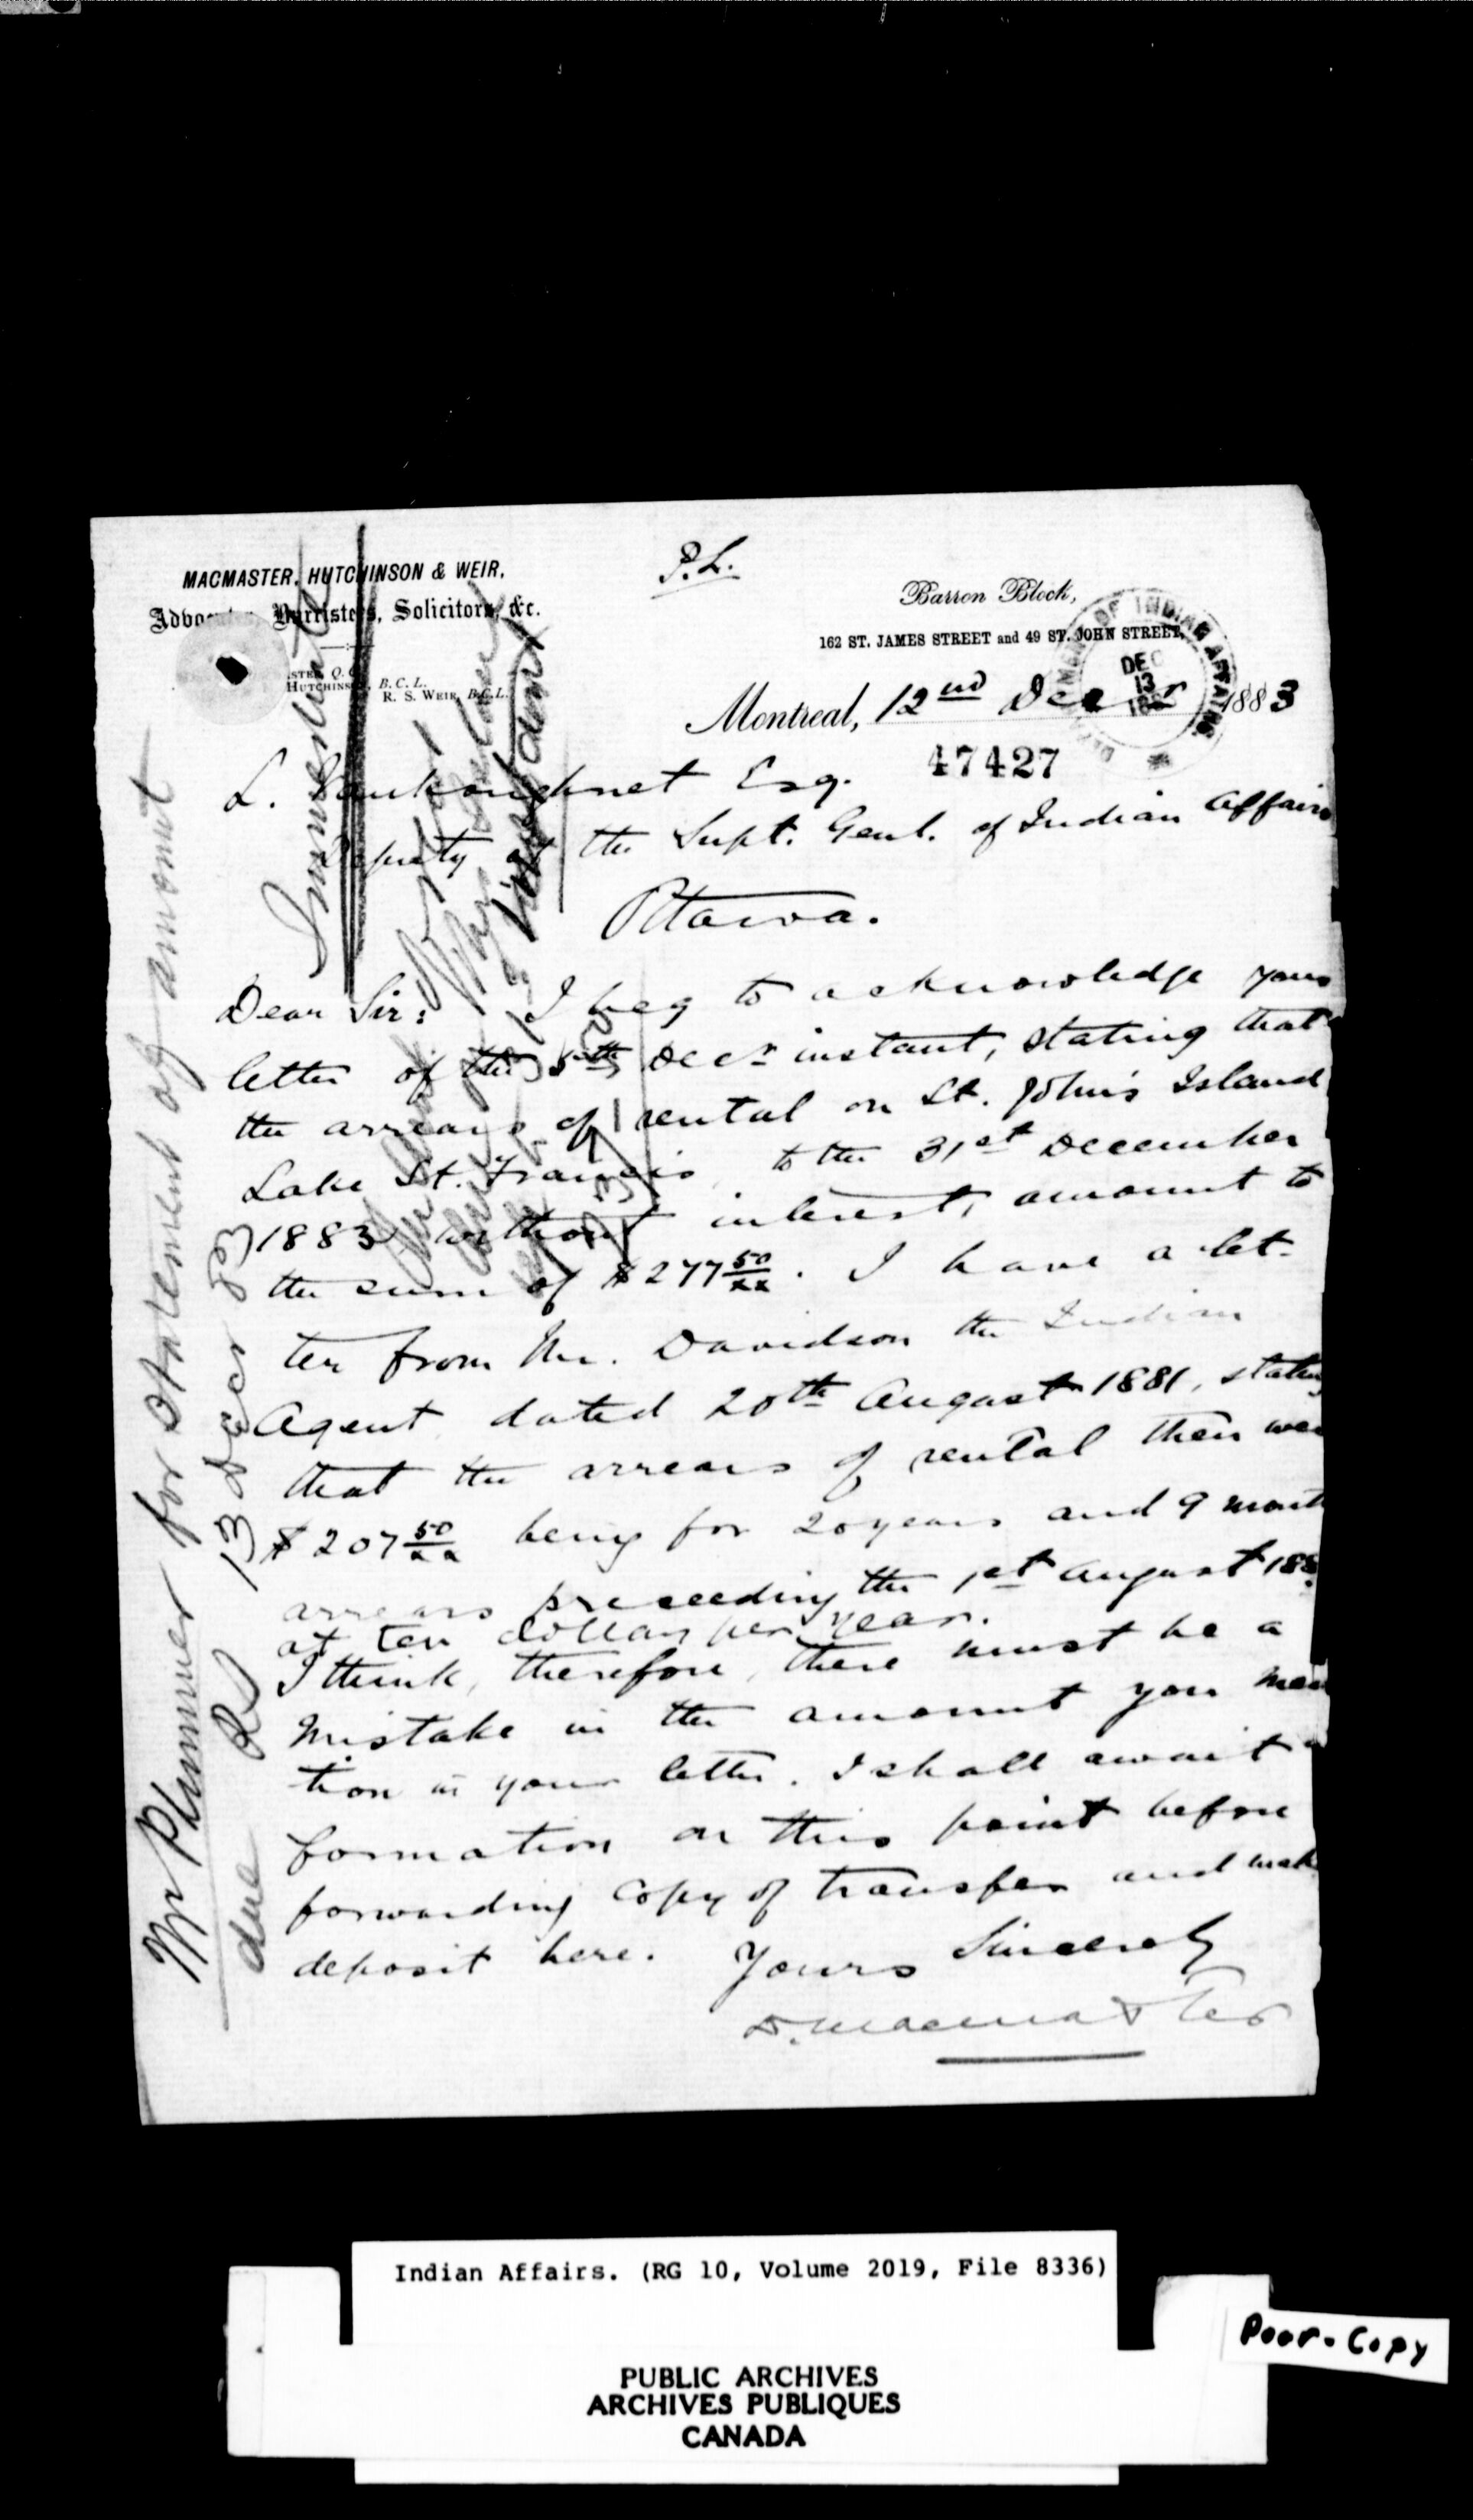 P.L.
MACMASTER, HUTCHINSON & WEIR,
Barristers, Solicitors, &c.
Q.C.
HUTCHINSON, B.C.L.
R. S. WEIR, B.C.L.
Barron Block,
162 ST. JAMES STREET and 49 ST. JOHN STREET,
Montreal, 12nd Decr 1883
OF INDIAN AFFAIRS
DEC
13
47427
L. Vankoughnet Esq.
Deputy of the Supt. Genl. of Indian Affairs
Ottawa.
Dear Sir: I beg to acknowledge your
letter of the 5th Decr instant, stating that
the arrears of rental on St. John's Island
Lake St. Francis to the 31st December
1883 without interest, amount to
the sum of $277 50/xx. I have a let-
ter from Mr. Davidson the Indian
Agent dated 20th August 1881, stating
that the arrears of rental then were
$207 50/xx being for 20 years and 9 month
arrears preceeding the 1st August 188
at ten dollars per year.
I think, therefore, there must be a
mistake in the amount you men
tion in your letter. I shall await
formation on this point before
forwarding copy of transfer and make
deposit here. Yours Sincerely
D. Macmaster
Mr Plummer for statement of amount
due 13 Decr 83
Indian Affairs. (RG 10, Volume 2019, File 8336)
PUBLIC ARCHIVES
ARCHIVES PUBLIQUES
CANADA
Poor-Copy